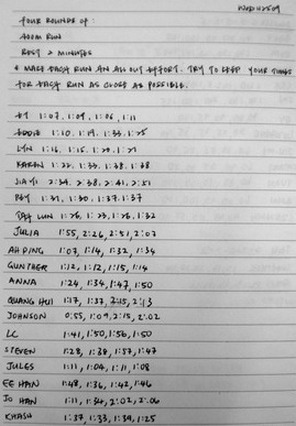 WOD 112509
FOUR ROUNDS OF:
400M RUN
REST 2 MINUTES
* MAKE EACH RUN AN ALL OUT EFFORT. TRY TO KEEP YOUR TIMES
FOR EACH RUN AS CLOSE AS POSSIBLE.
ET 1:07, 1:09, 1:06, 1:11
EDDIE 1:10, 1:19, 1:33, 1:25
LYN 1:16, 1:15, 1:20, 1:21
KAREN 1:22, 1:33, 1:38, 1:38
JIAYI 2:34, 2:38, 2:41, 2:51
PEY 1:31, 1:30, 1:37, 1:37
LUN 1:26, 1:23, 1:26, 1:32
JULIA 1:55, 2:26, 2:51, 2:07
AH PING 1:07, 1:14, 1:32, 1:34
GUNTHER 1:12, 1:12, 1:15, 1:14
ANNA 1:24, 1:34, 1:47, 1:50
QUANG HUI 1:17, 1:37, 2:15, 2:13
JOHNSON 0:55, 1:09, 2:15, 2:02
LC 1:41, 1:50, 1:56, 1:50
STEVEN 1:28, 1:38, 1:57, 1:47
JULES 1:11, 1:04, 1:11, 1:08
EE HAN 1:48, 1:36, 1:42, 1:46
JO HAN 1:11, 1:34, 2:02, 2:06
KHASH 1:37, 1:33, 1:39, 1:25